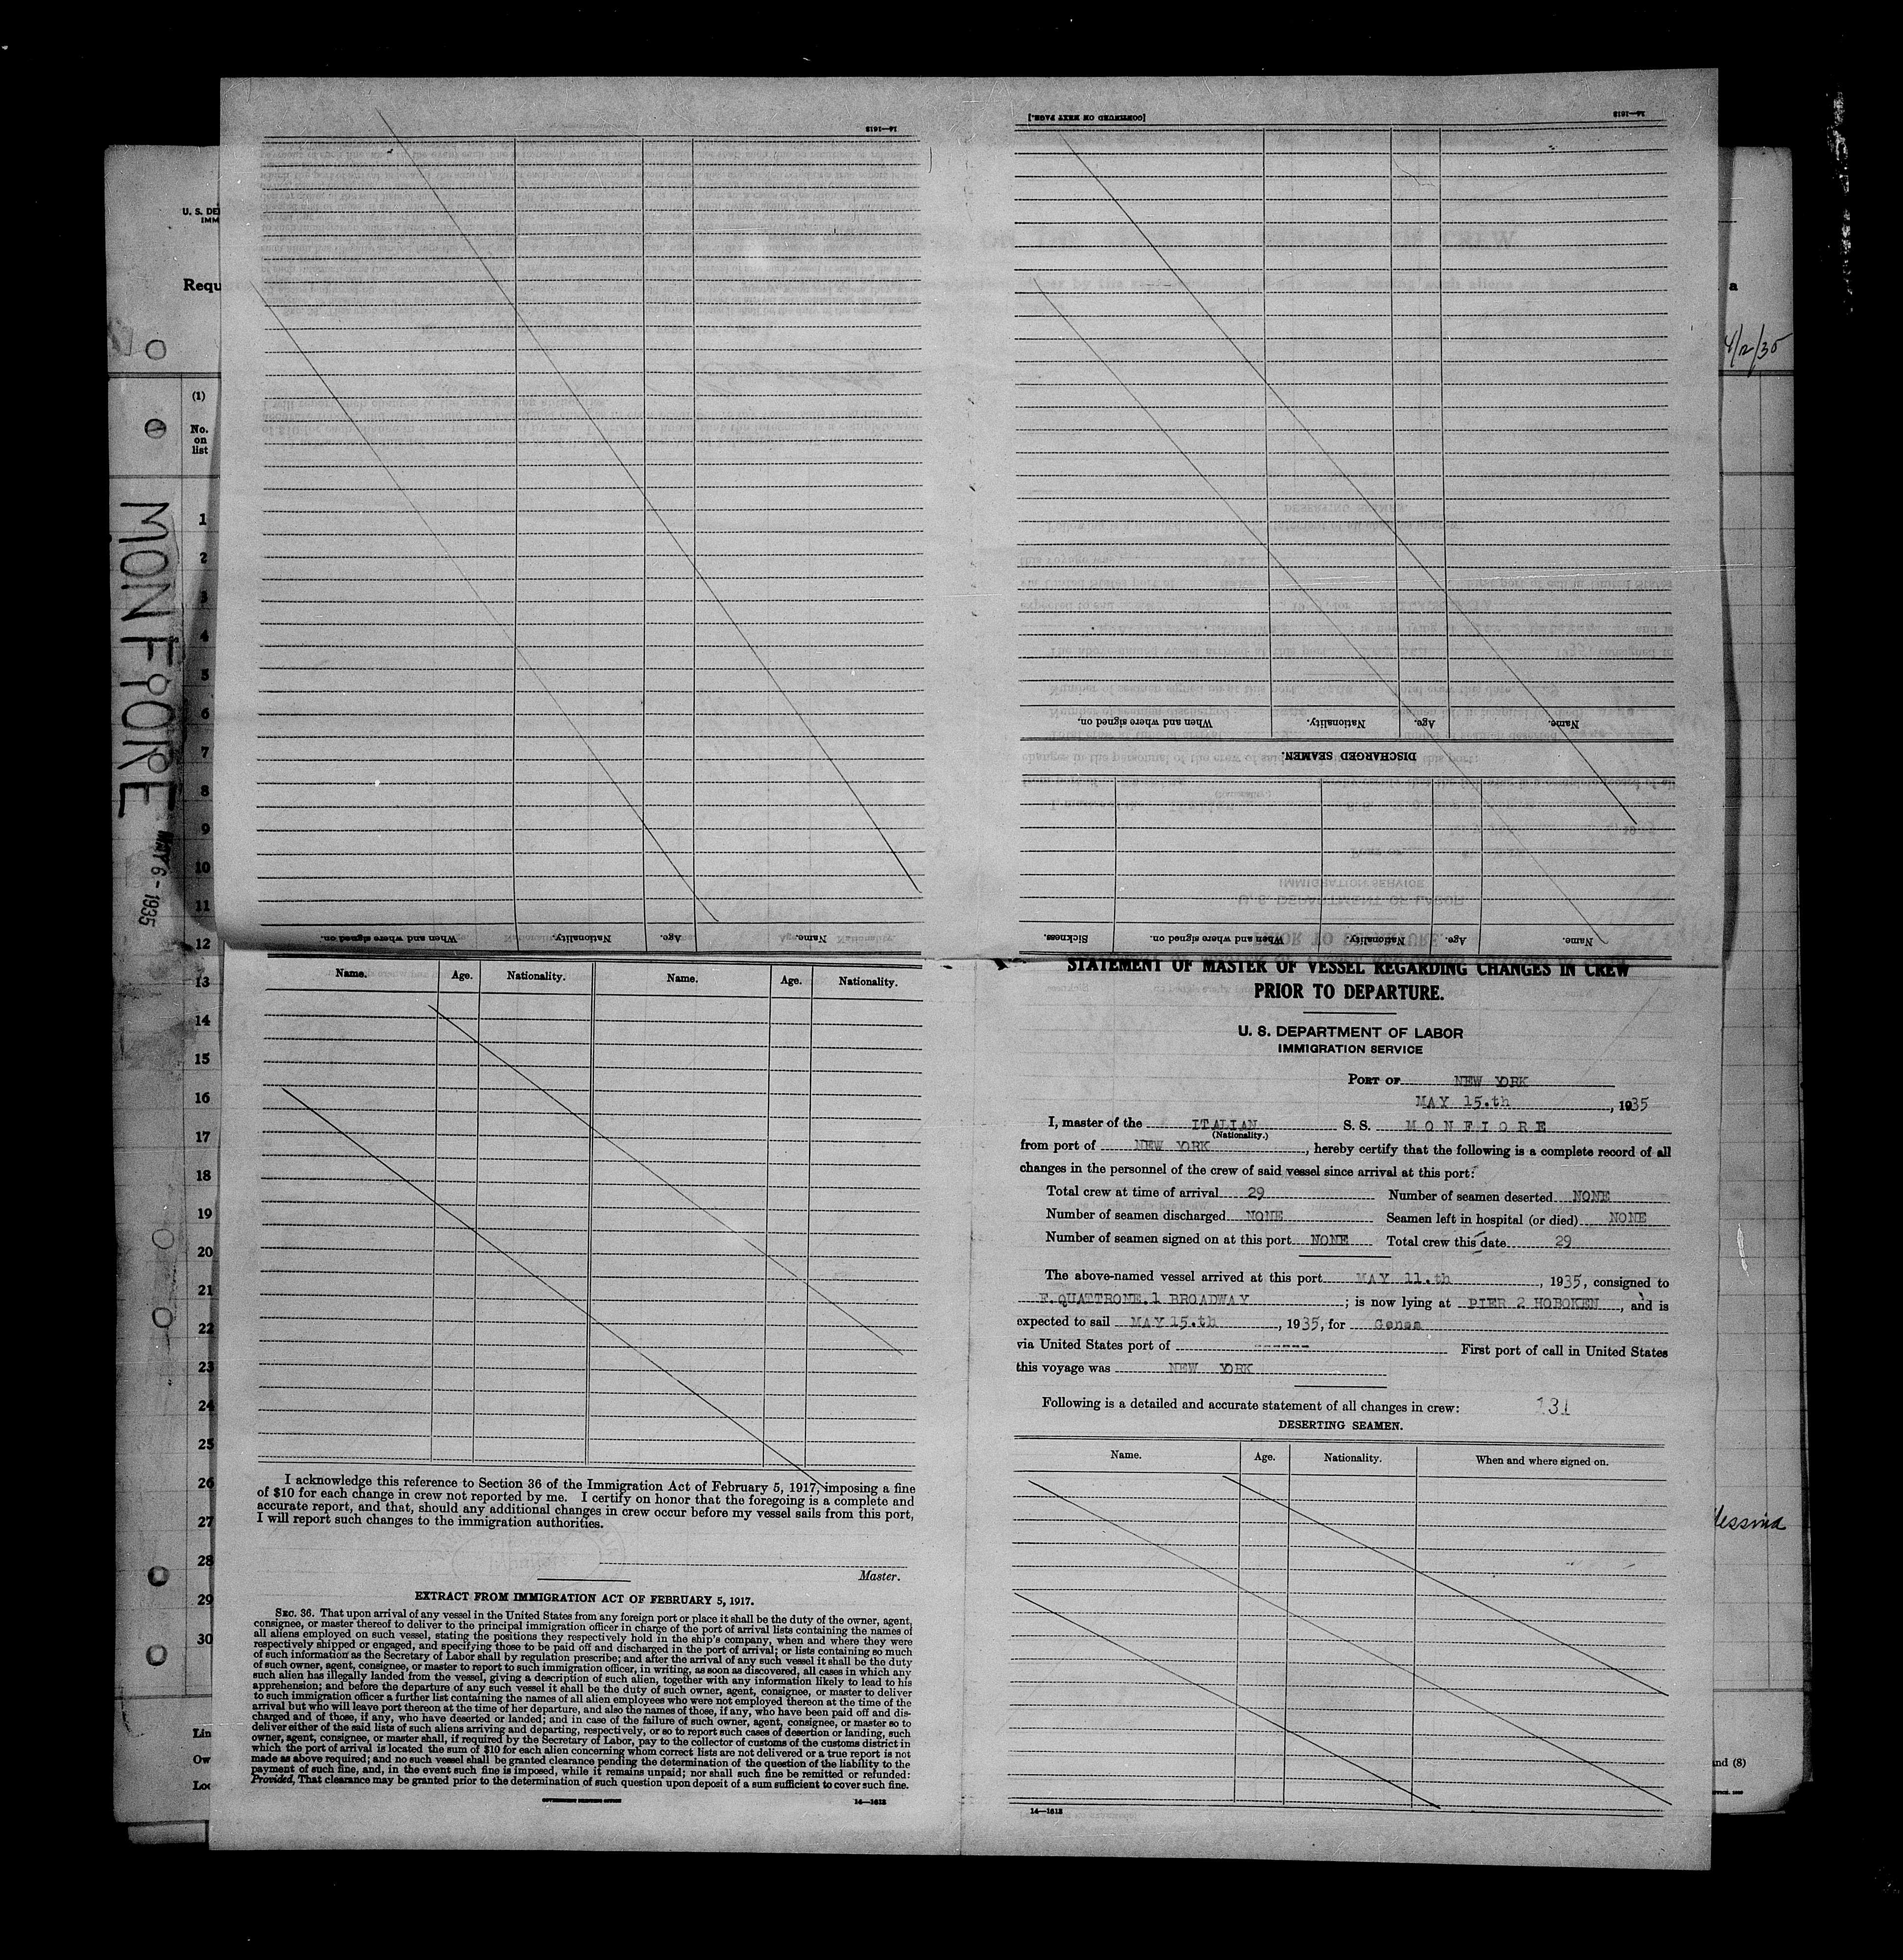 14—1613
[CONTINUED ON NEXT PAGE.]
14—1613
When and where signed on.
Nationality.
Age.
Name.
DISCHARGED SEAMEN.
Name.
Age.
Nationality.
When and where signed on.
Sickness.
Name.
Age.
Nationality.
When and where signed on.
U. S. DE
IMM
Requ
a
4/2/35
(1)
No.
on
list
MONFIORE
MAY 6 - 1935
1
2
3
4
5
6
7
8
9
10
11
12
13
14
15
16
17
18
19
20
21
22
23
24
25
26
27
28
29
30
Lin
Ow
Loc
Messina
nd (8)
Name. Age. Nationality. Name. Age. Nationality.
I acknowledge this reference to Section 36 of the Immigration Act of February 5, 1917, imposing a fine
of $10 for each change in crew not reported by me. I certify on honor that the foregoing is a complete and
accurate report, and that, should any additional changes in crew occur before my vessel sails from this port,
I will report such changes to the immigration authorities.
Master.
EXTRACT FROM IMMIGRATION ACT OF FEBRUARY 5, 1917.
SEC. 36. That upon arrival of any vessel in the United States from any foreign port or place it shall be the duty of the owner, agent,
consignee, or master thereof to deliver to the principal immigration officer in charge of the port of arrival lists containing the names of
all aliens employed on such vessel, stating the positions they respectively hold in the ship's company, when and where they were
respectively shipped or engaged, and specifying those to be paid off and discharged in the port of arrival; or lists containing so much
of such information as the Secretary of Labor shall by regulation prescribe; and after the arrival of any such vessel it shall be the duty
of such owner, agent, consignee, or master to report to such immigration officer, in writing, as soon as discovered, all cases in which any
such alien has illegally landed from the vessel, giving a description of such alien, together with any information likely to lead to his
apprehension; and before the departure of any such vessel it shall be the duty of such owner, agent, consignee, or master to deliver
to such immigration officer a further list containing the names of all alien employees who were not employed thereon at the time of the
arrival but who will leave port thereon at the time of her departure, and also the names of those, if any, who have been paid off and dis-
charged and of those, if any, who have deserted or landed; and in case of the failure of such owner, agent, consignee, or master so to
deliver either of the said lists of such aliens arriving and departing, respectively, or so to report such cases of desertion or landing, such
owner, agent, consignee, or master shall, if required by the Secretary of Labor, pay to the collector of customs of the customs district in
which the port of arrival is located the sum of $10 for each alien concerning whom correct lists are not delivered or a true report is not
made as above required; and no such vessel shall be granted clearance pending the determination of the question of the liability to the
payment of such fine, and, in the event such fine is imposed, while it remains unpaid; nor shall such fine be remitted or refunded:
Provided, That clearance may be granted prior to the determination of such question upon deposit of a sum sufficient to cover such fine.
GOVERNMENT PRINTING OFFICE 14—1613
STATEMENT OF MASTER OF VESSEL REGARDING CHANGES IN CREW
PRIOR TO DEPARTURE.
U. S. DEPARTMENT OF LABOR
IMMIGRATION SERVICE
PORT OF NEW YORK
MAY 15.th, 1935
I, master of the ITALIAN S. S. MONFIORE
(Nationality.)
from port of NEW YORK, hereby certify that the following is a complete record of all
changes in the personnel of the crew of said vessel since arrival at this port:
Total crew at time of arrival 29 Number of seamen deserted NONE
Number of seamen discharged NONE Seamen left in hospital (or died) NONE
Number of seamen signed on at this port NONE Total crew this date 29
The above-named vessel arrived at this port MAY 11.th, 1935, consigned to
F. QUATTRONE. 1 BROADWAY; is now lying at PIER 2 HOBOKEN, and is
expected to sail MAY 15.th, 1935, for Genoa
via United States port of ----- First port of call in United States
this voyage was NEW YORK
Following is a detailed and accurate statement of all changes in crew: 131
DESERTING SEAMEN.
Name. Age. Nationality. When and where signed on.
14—1613